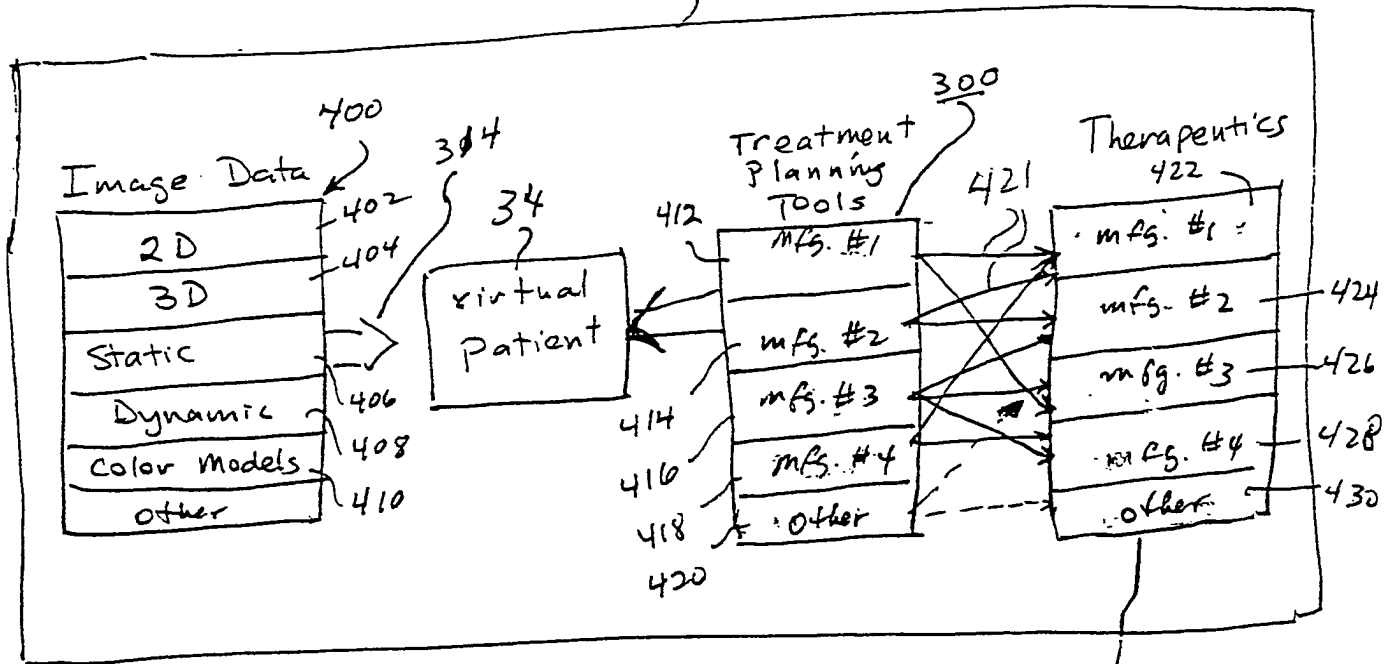 400
314
Image Data
402
2D
404
3D
Static
406
Dynamic
408
Color Models
410
other
34
virtual
patient
300
Treatment
Planning
Tools
412
mfg. #1
mfg. #2
414
mfg. #3
416
mfg. #4
418
other
420
421
Therapeutics
422
mfg. #1
mfg. #2
424
mfg. #3
426
mfg. #4
428
other
430